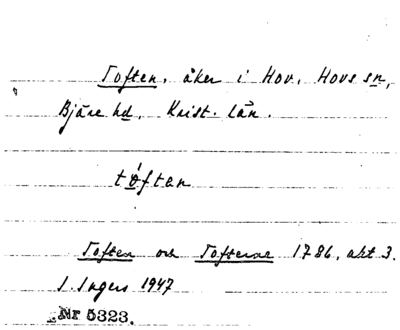 Toften, åker i Hov, Hovs sn,
Bjäre hd, Krist. län.
tóften
Toften och Tofterne 1786, akt 3.
I. Ingers 1947
Nr 5323.